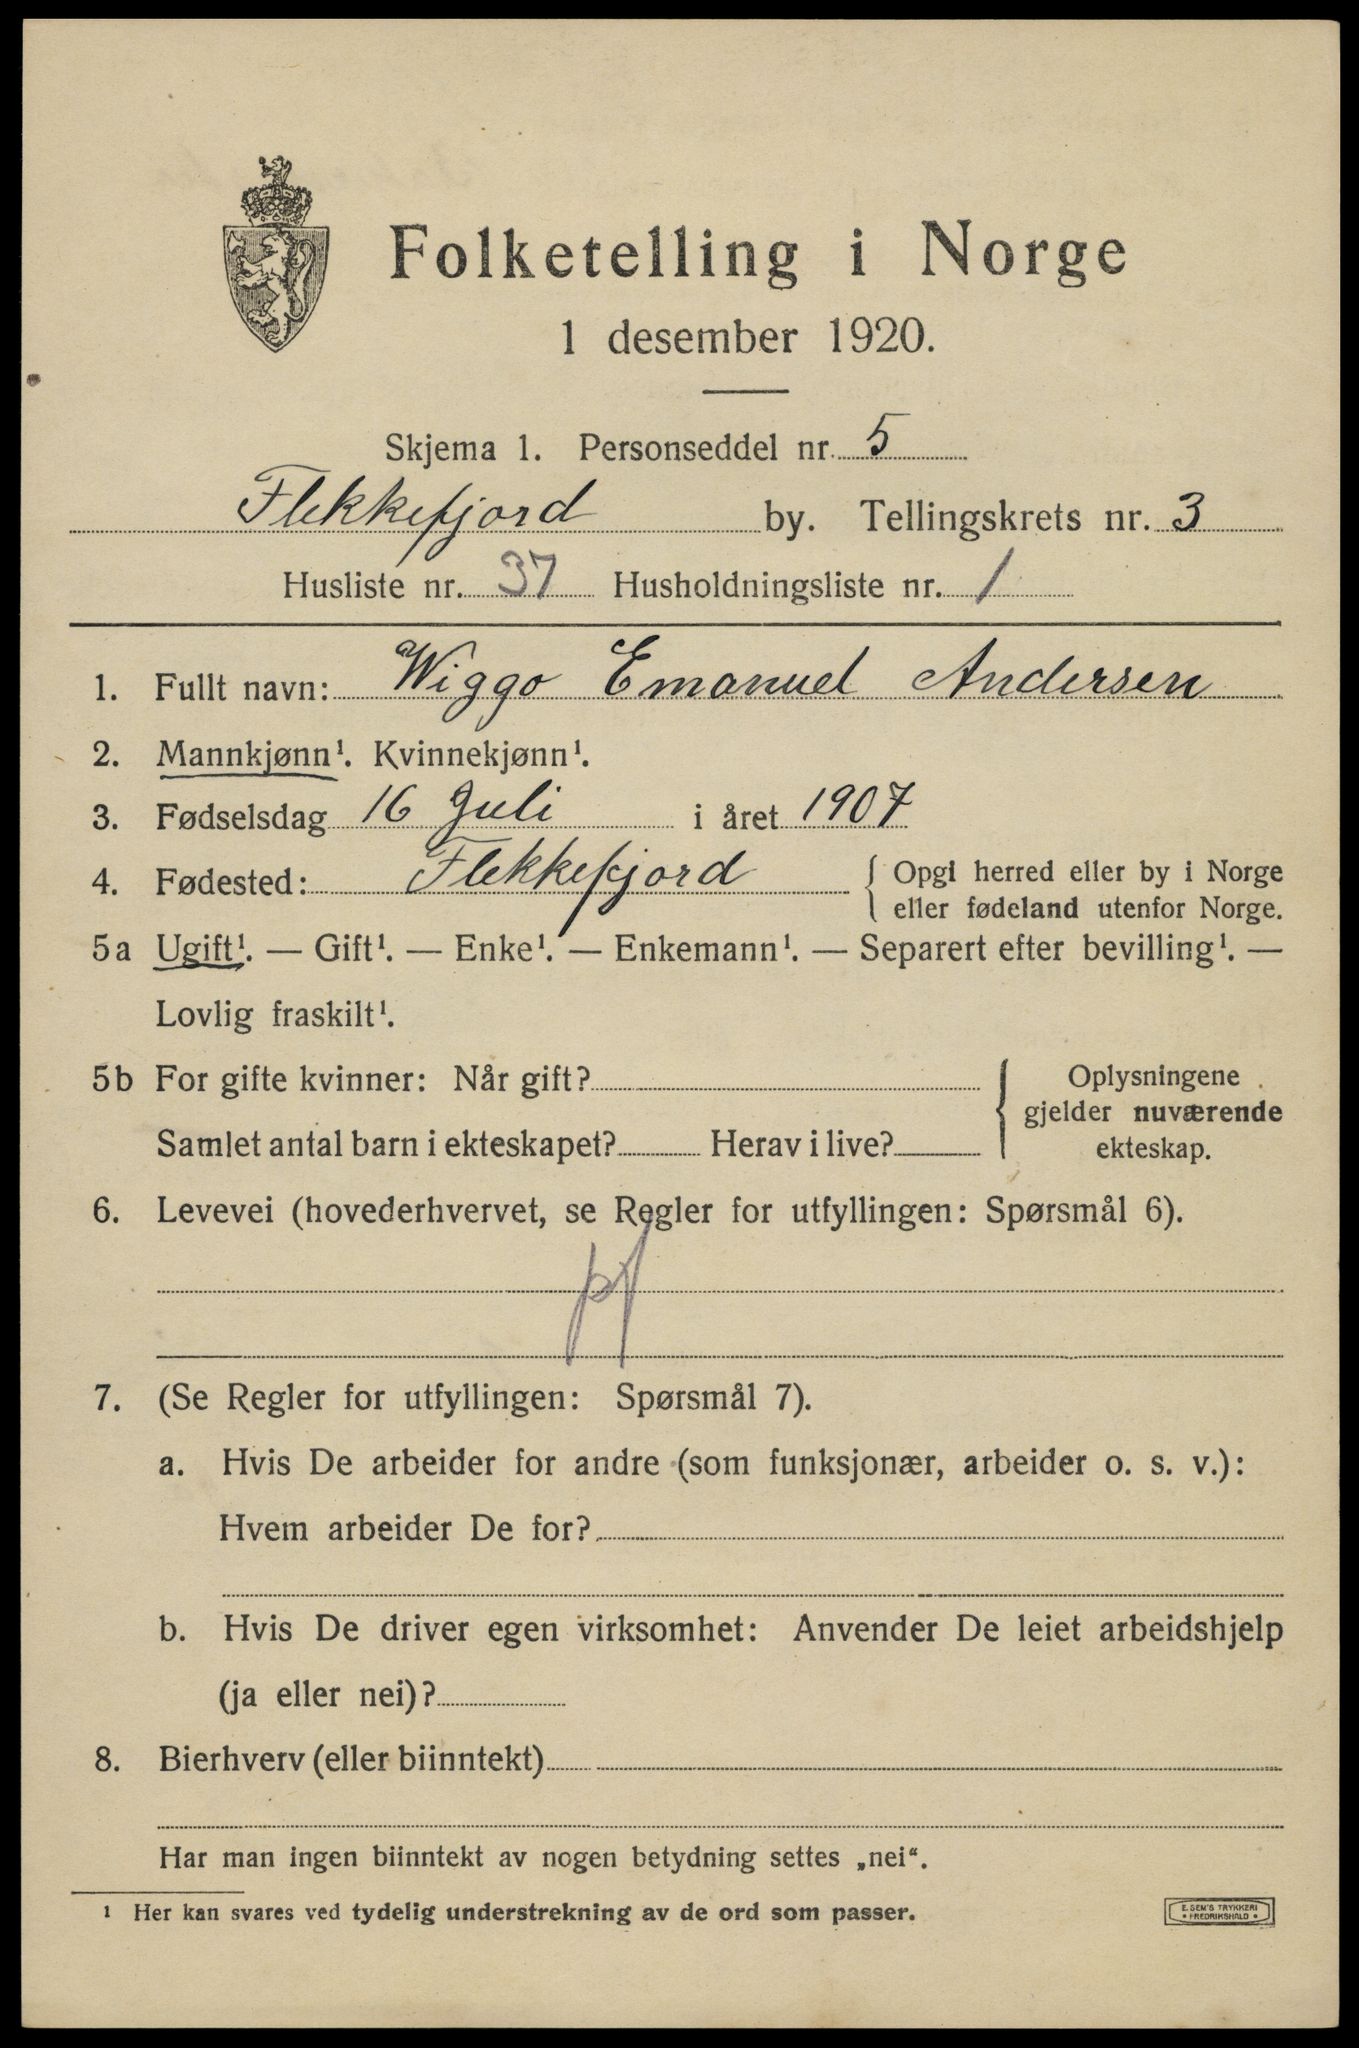 Folketelling i Norge
1 desember 1920.
Skjema 1. Personseddel nr. 5
Flekkefjord by. Tellingskrets nr. 3
Husliste nr. 37 Husholdningsliste nr. 1
1. Fullt navn: Wiggo Emanuel Andersen
2. Mannkjønn¹. Kvinnekjønn¹.
3. Fødselsdag 16 Juli i året 1907
4. Fødested: Flekkefjord { Opgi herred eller by i Norge
eller fødeland utenfor Norge.
5a Ugift¹. — Gift¹. — Enke¹. — Enkemann¹. — Separert efter bevilling¹. —
Lovlig fraskilt¹.
5b For gifte kvinner: Når gift?
Samlet antal barn i ekteskapet? Herav i live?
{ Oplysningene
gjelder nuværende
ekteskap.
6. Levevei (hovederhvervet, se Regler for utfyllingen: Spørsmål 6).
pf
7. (Se Regler for utfyllingen: Spørsmål 7).
a. Hvis De arbeider for andre (som funksjonær, arbeider o. s. v.):
Hvem arbeider De for?
b. Hvis De driver egen virksomhet: Anvender De leiet arbeidshjelp
(ja eller nei)?
8. Bierhverv (eller biinntekt)
Har man ingen biinntekt av nogen betydning settes „nei“.
¹ Her kan svares ved tydelig understrekning av de ord som passer.
E. SEM'S TRYKKERI
• FREDRIKSHALD •